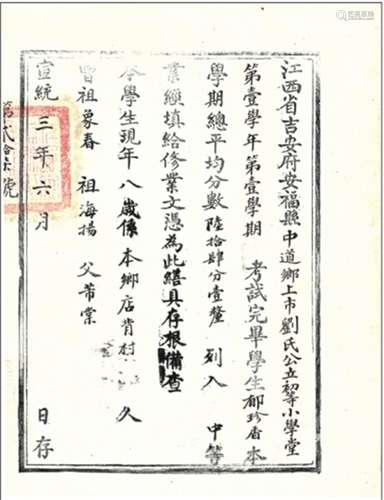 江西省吉安府安福縣中道鄉上市劉氏公立初等小學堂
第壹學年第壹學期 考試完畢學生郁珍香本
學期總平均分數陸拾肆分壹釐 列入 中等
業經填給修業文憑為此繕具存根備查
今學生現年八歲係本鄉店背村 人
曾祖象春 祖海揚 父芾棠
宣統三年六月 日存
第貳拾 號